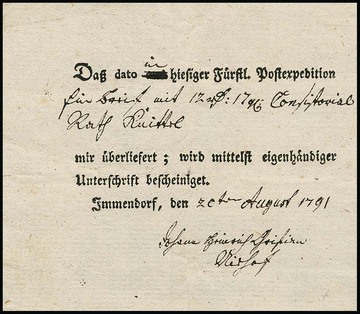 in
Daß dato hiesiger Fürstl. Postexpedition
Ein Brief mit 12 Consistorial
Rath Knittel
mir überliefert; wird mittelst eigenhändiger
Unterschrift bescheiniget.
Immendorf, den 20ten August 1791
Johann Heinrich Christian